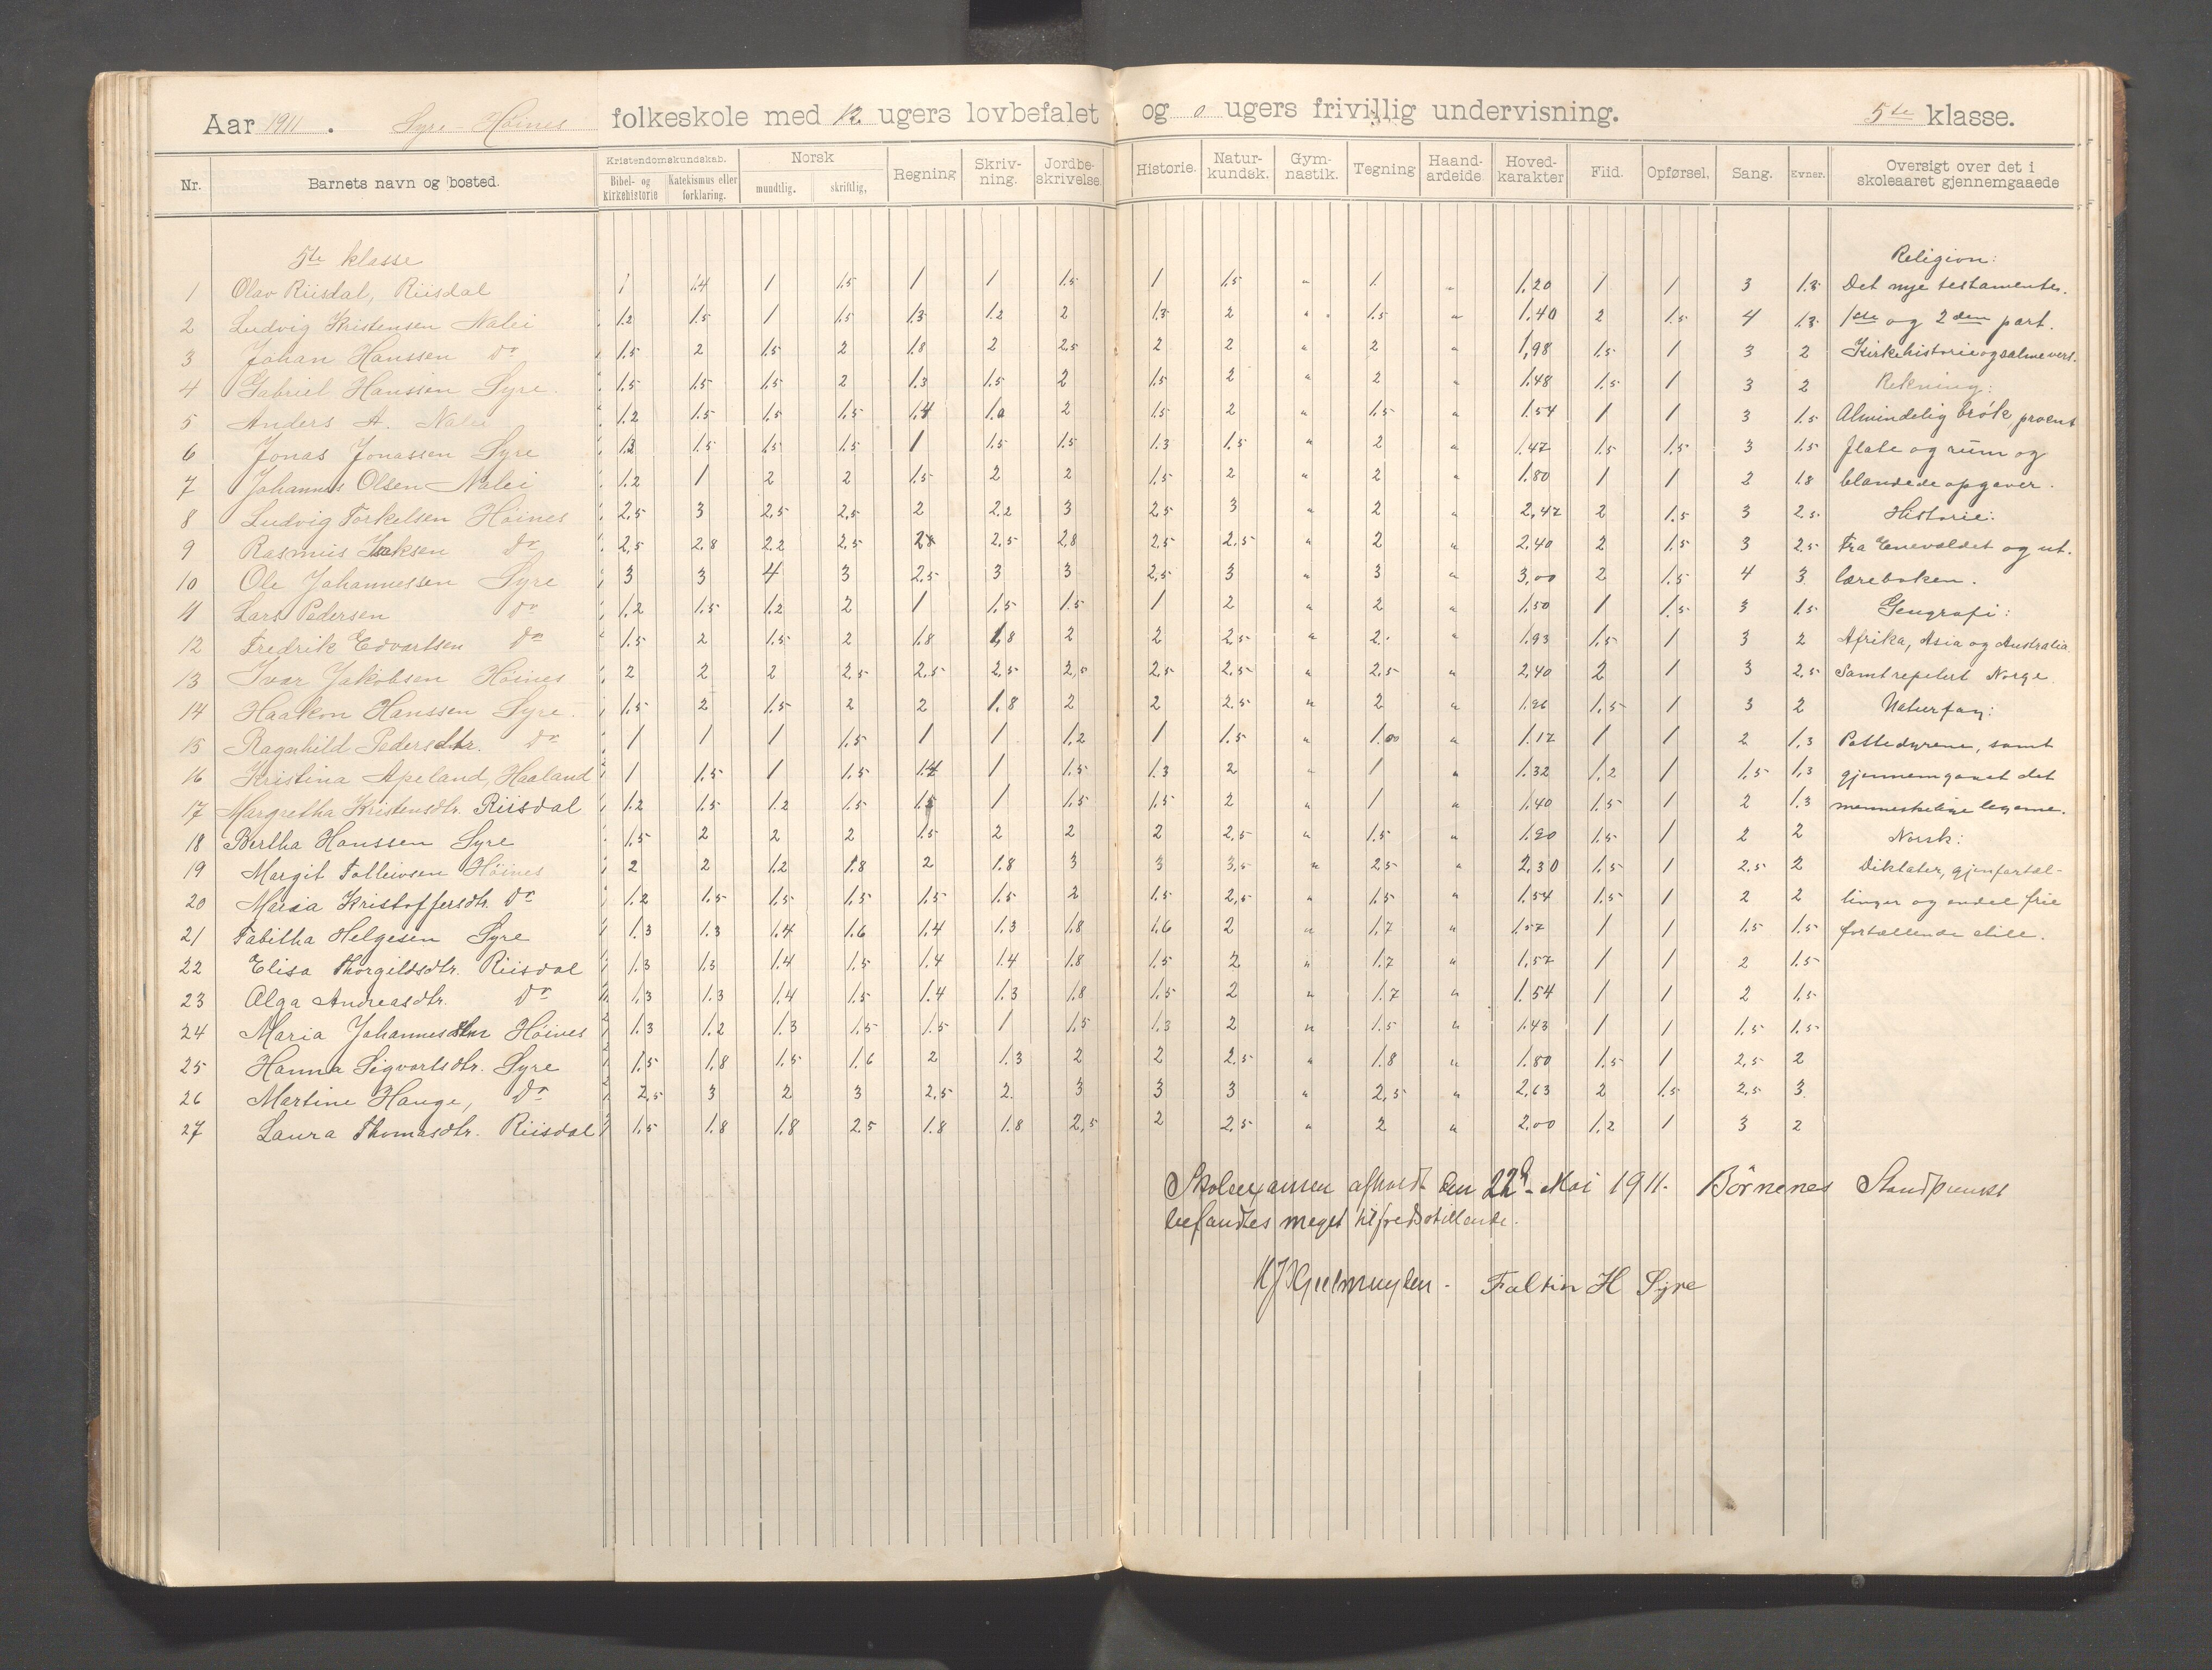 Aar 1911. Syre-Høines folkeskole med 12 ugers lovbefalet og 0 ugers frivillig undervisning. 5te klasse.
Nr. Barnets navn og bosted. Kristendomskundskab. Bibel- og kirkehistorie Katekismus eller forklaring. Norsk mundtlig, skriftlig, Regning Skriv-ning. Jordbe-skrivelse. Historie. Natur-kundsk. Gym-nastik. Tegning Haand-arbeide Hoved-karakter Flid. Opførsel. Sang. Evner. Oversigt over det i skoleaaret gjennemgaaede
5te klasse Religion:
1 Olav Riisdal, Riisdal 1 1.4 1 1.5 1 1 1.5 1 1.5 " 1 " 1.20 1 1 3 1.3 Det nye testamente.
2 Ludvig Kristensen Nalei 1.2 1.5 1 1.5 1.3 1.2 2 1.3 2 " 1.5 " 1.40 2 1.5 4 1.3 1ste og 2den part.
3 Johan Hanssen do 1.5 2 1.5 2 1.8 2 2.5 2 2 " 2 " 1,98 1.5 1 3 2 Kirkehistorie og salmevers.
4 Gabriel Hanssen Syre. 1.5 1.5 1.5 2 1.3 1.5 2 1.5 2 " 2 " 1.48 1.5 1 3 2 Rekning:
5 Anders A. Nalei 1.2 1.5 1.5 1.5 1.4 2 1.5 2 " 1.5 " 1.54 1 1 3 1.5 Almindelig brøk, procent
6 Jonas Jonassen Syre 1.3 1.5 1.5 1.5 1 1.5 1.5 1.3 1.5 " 2 " 1.47 1.5 1.5 3 1.5 flate og rum og
7 Johannes Olsen Nalei 1.2 1 2 2 1.5 2 2 1.5 2 " 2 " 1.80 1 1 2 1.8 blandede opgaver.
8 Ludvig Torkelsen Høines 2,5 3 2,5 2,5 2 2.2 3 2,5 3 " 2 " 2,47 2 1.5 3 2.5 Historie:
9 Rasmus Isaksen do 2,5 2.8 2.2 2.5 2.8 2,5 2.8 2.5 2.5 " 2 " 2.40 2 1.5 3 2.5 Fra Enevældet og ut.
10 Ole Johannessen Syre 3 3 4 3 2.5 3 3 2,5 3 " 3 " 3,00 2 1.5 4 3 læreboken.
11 Lars Pedersen do 1.2 1.5 1.2 2 1 1.5 1.5 1 2 " 2 " 1.50 1 1.5 3 1.5 Geografi:
12 Fredrik Edvartsen do 1.5 2 1.5 2 1.8 1.8 2 2 2.5 " 2. " 1.93 1.5 1 3 2 Afrika, Asia og Australia
13 Ivar Jakobsen Høines 2 2 2 2,5 2.5 2.5 2,5 2.5 2.5 " 2.5 " 2,40 2 1 3 2.5 Samt repetert Norge
14 Haakon Hanssen Syre. 1.5 2 1.5 2 2 1.8 2 2 2.5 " 2 " 1.96 1.5 1 3 2 Naturfag:
15 Ragnhild Pedersdtr. do 1 1 1 1.5 1 1 1.2 1 1.5 " 1.00 " 1.17 1 1 2 1.3 Pattedyrene, samt
16 Kristina Apeland, Haaland 1 1.5 1 1.5 1.4 1 1.5 1.3 2 " 1 " 1.32 1.2 1 1.5 1.3 gjennemgaaet det
17 Margretha Kristensdtr. Riisdal 1.2 1.5 1.2 1.5 1.5 1 1.5 1.5 2 " 1 " 1.40 1.5 1 2 1.3 menneskelige legeme.
18 Bertha Hanssen Syre 1.5 2 2 2 1.5 2 2 2 2,5 " 1.5 " 1.90 1.5 1 2 2 Norsk:
19 Margit Tolleivsen Høines 2 2 1.2 1.8 2 1.8 3 3 3.5 " 2.5 " 2,30 1.5 1 2.5 2 Diktater, gjenfortæl-
20 Maria Kristoffersdtr. do 1.2 1.5 1.5 1.5 1.5 1.5 2 1.5 2,5 " 1.5 " 1.54 1.5 1 2 2 linger og endel frie
21 Tabitha Helgesen Syre 1.3 1.3 1.4 1.6 1.4 1.3 1.8 1.6 2 " 1.7 " 1.57 1 1 1.5 1.5 fortællende stile.
22 Elisa Thorgilsdtr. Riisdal 1.3 1.3 1.4 1.5 1.4 1.4 1.8 1.5 2 " 1.7 " 1.57 1 1 2 1.5
23 Alga Andreasdtr. do 1.3 1.3 1.4 1.5 1.4 1.3 1.8 1.5 2 " 1.7 " 1.54 1 1 2 1.5
24 Maria Johannesdtr Høines 1.3 1.2 1.3 1.5 1.5 1 1.5 1.3 2 " 1.5 " 1.43 1 1 1.5 1.5
25 Hanna Sigvartsdtr. Syre 1.5 1.8 1.5 1.6 2 1.3 2 2 2.5 " 1.8 " 1.80 1.5 1 2,5 2
26 Martine Hauge, do 2,5 3 2 3 2,5 2. 3 3 3 " 2,5 " 2,63 2 1.5 2,5 3
27 Laura Thomasdtr. Riisdal 1.5 1.8 1.8 2.5 1.8 1.8 2,5 2 2.5 " 2 " 2.00 1.2 1 3 2
Skoleexamen afholdt den 22d Mai 1911. Börnenes Standpunkt
befandtes meget tilfredsstillende.
Faltin H Syre